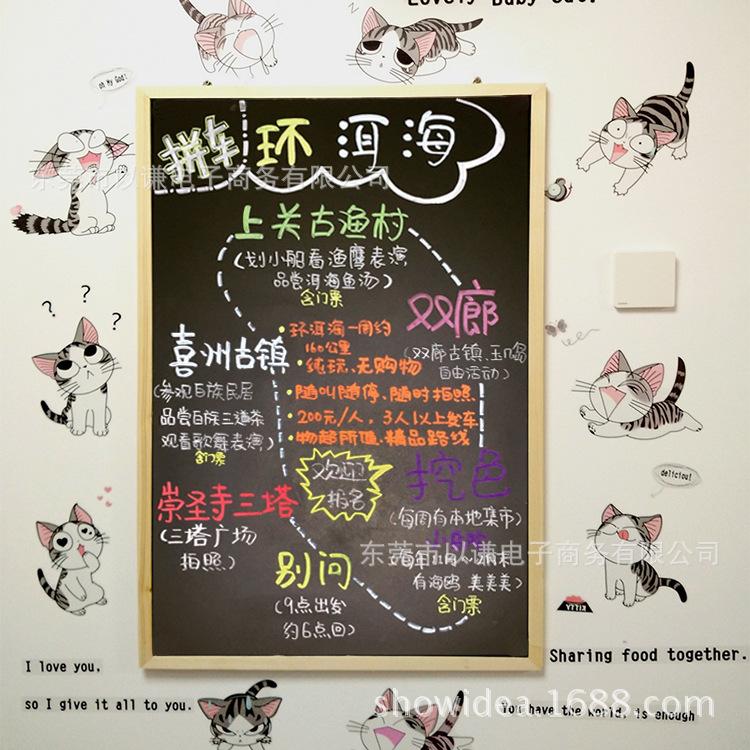 Lovely Baby Cat.
oh my God!
拼车环洱海
东莞市以谦电子商务有限公司
上关古渔村
(划小船看渔鹰表演,
品尝洱海鱼汤)
含门票
双廊
(双廊古镇、玉几岛
自由活动)
喜洲古镇
(参观白族民居
品尝白族三道茶
观看歌舞表演)
含门票
·环洱海一周约
160公里
·纯玩、无购物
·随叫随停、随时拍照
·200元/人，3人以上发车
·物超所值、精品路线
欢迎
报名
挖色
(每周有本地集市)
崇圣寺三塔
(三塔广场
拍照)
东莞市以谦电子商务有限公司
有海鸥 美美美)
含门票
别问
(9点出发
约6点回)
? ? ?
delicious!
KITTY
I love you,
so I give it all to you.
Sharing food together.
You have the world, is enough
showidea.1688.com